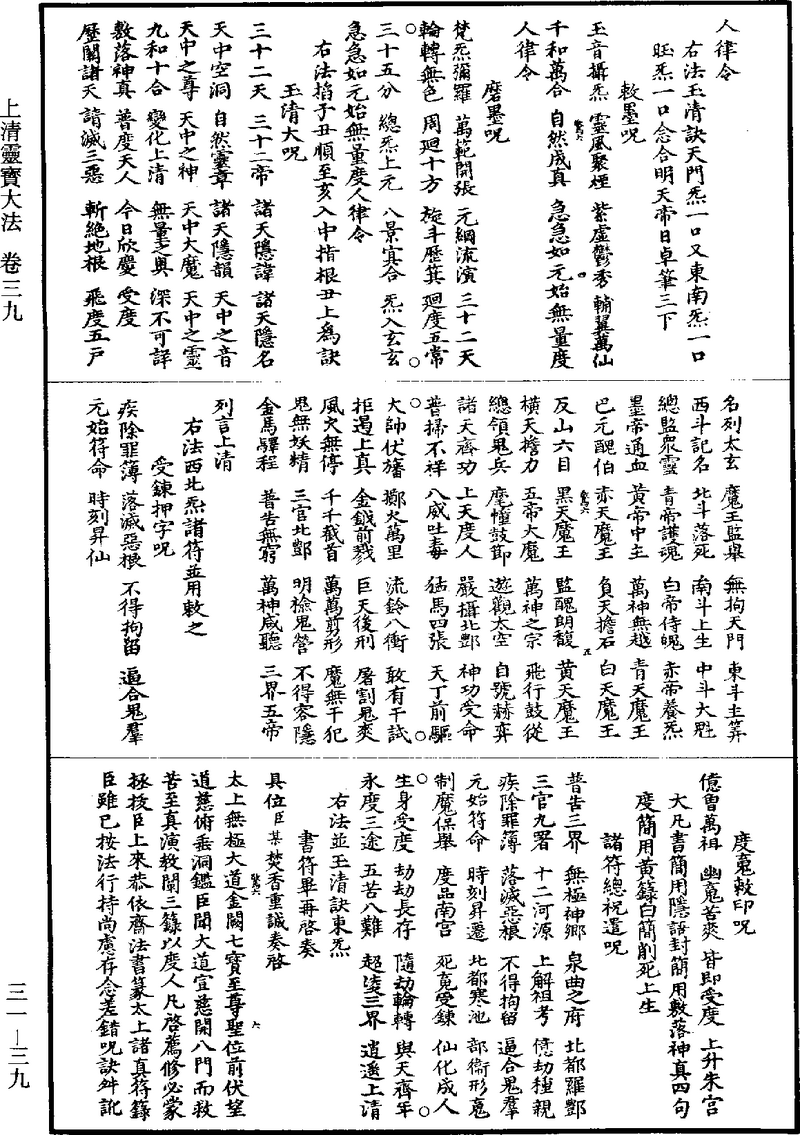 人律令
右法玉清訣天門炁一口又東南炁一口
旺炁一口念合明天帝日卓筆三下
敕墨呪
玉音攝炁　靈風聚煙　紫虛鬱秀　輔翼萬仙
千和萬合　自然成真　急急如元始無量度
人律令
磨墨呪
梵炁彌羅　萬範開張　元綱流演　三十二天
輪轉無色　周迴十方　旋斗歷箕　迴度五常
三十五分　總炁上元　八景冥合　炁入玄玄
急急如元始無量度人律令
右法掐子丑順至亥入中指根丑上為訣
玉清大呪
三十二天　三十二帝　諸天隱諱　諸天隱名
天中空洞　自然靈章　諸天隱韻　天中之音
天中之尊　天中之神　天中大魔　天中之靈
九和十合　變化上清　無量之奧　深不可詳
敷落神真　普度天人　今日欣慶　受度
歷關諸天　請滅三惡　斬絶地根　飛度五戶
名列太玄　魔王監舉　無拘天門　東斗主筭
西斗記名　北斗落死　南斗上生　中斗大魁
總監眾靈　青帝護魂　白帝侍魄　赤帝養炁
黑帝通血　黃帝中主　萬神無越　青天魔王
巴元醜伯　赤天魔王　負天擔石　白天魔王
反山六目　黑天魔王　監醜朗馥　黃天魔王
橫天擔力　五帝大魔　萬神之宗　飛行鼓從
總領鬼兵　麾幢鼓節　遊觀太空　自號赫弈
諸天齊功　上天度人　嚴攝北酆　神功受命
普掃不祥　八威吐毒　猛馬四張　天丁前驅
大帥伏旛　擲火萬里　流鈴八衝　敢有干試
拒遏上真　金鉞前戮　巨天後刑　屠割鬼爽
風火無停　千千截首　萬萬剪形　魔無干犯
鬼無妖精　三官北酆　明檢鬼營　不得容隱
金馬驛程　普告無窮　萬神咸聽　三界五帝
列言上清
右法西北炁諸符並用敕之
受鍊押字呪
疾除罪簿　落滅惡根　不得拘留　逼合鬼羣
元始符命　時刻昇仙
度䰟敕印呪
億曾萬祖　幽䰟苦爽　皆即受度　上升朱宮
大凡書簡用隱語封簡用敷落神真四句
度簡用黃籙白簡削死上生
諸符總祝遣呪
普告三界　無極神鄉　泉曲之府　北都羅酆
三官九署　十二河源　上解祖考　億劫種親
疾除罪簿　落滅惡根　不得拘留　逼合鬼羣
元始符命　時刻昇遷　北都寒池　部衛形䰟
制魔保舉　度品南宮　死䰟受鍊　仙化成人
生身受度　劫劫長存　隨劫輪轉　與天齊年
永度三途　五苦八難　超凌三界　逍遙上清
右法並玉清訣東炁
書符畢再啓奏
具位臣某焚香重誠奏啓
太上無極大道金闕七寶至尊聖位前伏望
道慈俯垂洞鑑臣聞大道宣慈開八門而救
苦至真演教闡三籙以度人凡啓薦修必蒙
拯拔臣上來恭依齋法書篆太上諸真符籙
臣雖已按法行持尚慮存念差錯呪訣舛訛
上清靈寶大法　卷三九
三一—三九